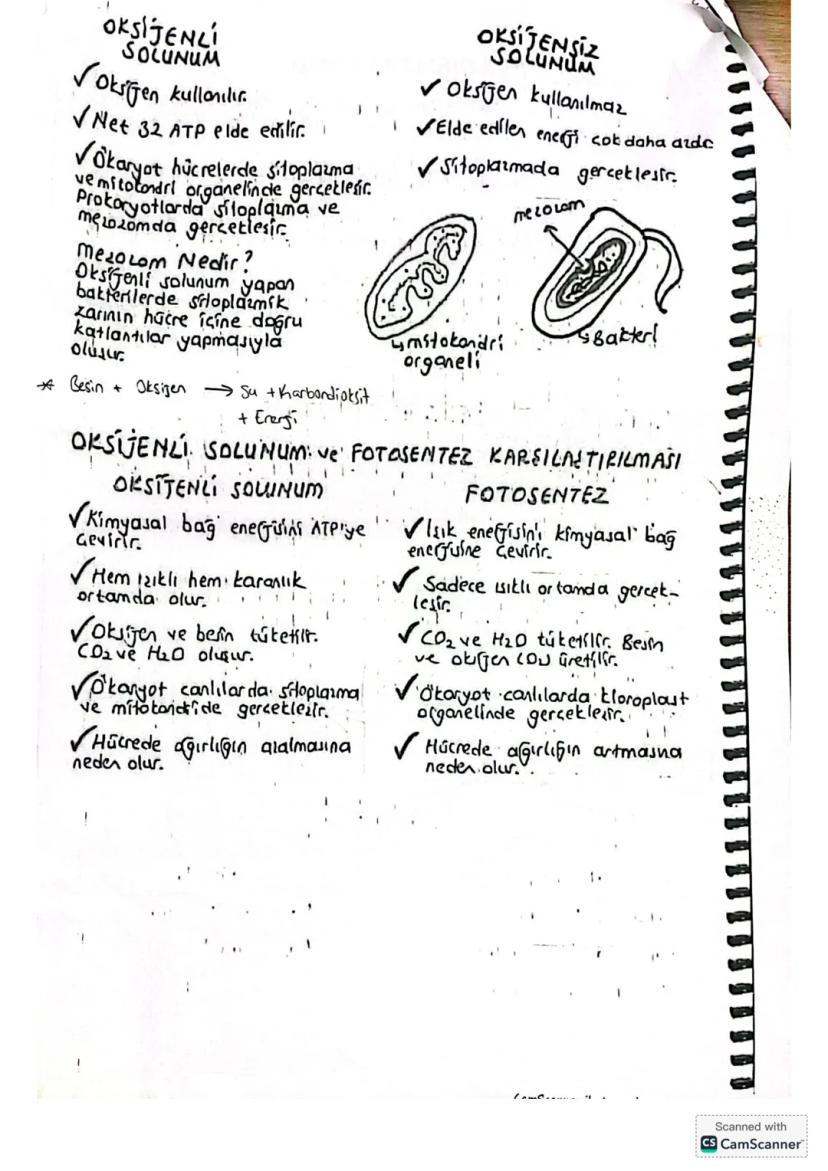 OKSİJENLİ
SOLUNUM
✓ Oksijen kullanılır.
✓ Net 32 ATP elde edilir.
✓ Ökaryot hücrelerde sitoplazma
ve mitokondri organelinde gerçekleşir.
Prokaryotlarda sitoplazma ve
mezozomda gerçekleşir.
Mezozom Nedir?
Oksijenli solunum yapan
bakterilerde sitoplazmik
zarının hücre içine doğru
katlantılar yapmasıyla
oluşur.
OKSİJENSİZ
SOLUNUM
✓ Oksijen kullanılmaz
✓ Elde edilen enerji çok daha azdı
✓ Sitoplazmada gerçekleşir.
mezozom
↳ mitokondri
organeli
↳ Bakteri
* Besin + Oksijen → Su + Karbondioksit
+ Enerji
OKSİJENLİ SOLUNUM ve FOTOSENTEZ KARŞILAŞTIRILMASI
OKSİJENLİ SOLUNUM
✓ Kimyasal bağ enerjisini ATP'ye
çevirir.
✓ Hem ışıklı hem karanlık
ortamda olur.
✓ Oksijen ve besin tüketilir.
CO2 ve H2O oluşur.
✓ Ökaryot canlılarda sitoplazma
ve mitokondride gerçekleşir.
✓ Hücrede ağırlığın azalmasına
neden olur.
FOTOSENTEZ
✓ Işık enerjisini kimyasal bağ
enerjisine çevirir.
✓ Sadece ışıklı ortamda gerçek-
leşir.
✓ CO2 ve H2O tüketilir. Besin
ve oksijen (O2) üretilir.
✓ Ökaryot canlılarda kloroplast
organelinde gerçekleşir.
✓ Hücrede ağırlığın artmasına
neden olur.
Scanned with
CS CamScanner